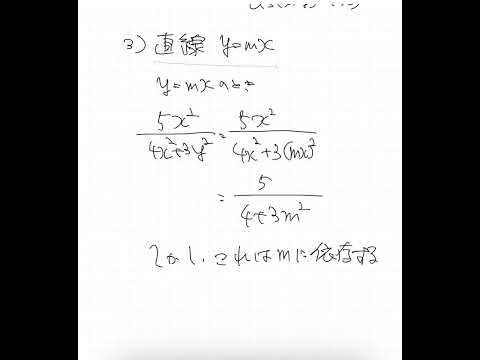 3) 直線 y=mx
y=mxのとき
5x²/(4x²+3y²) = 5x²/(4x²+3(mx)²)
= 5/(4+3m²)
しかし、これはmに依存する